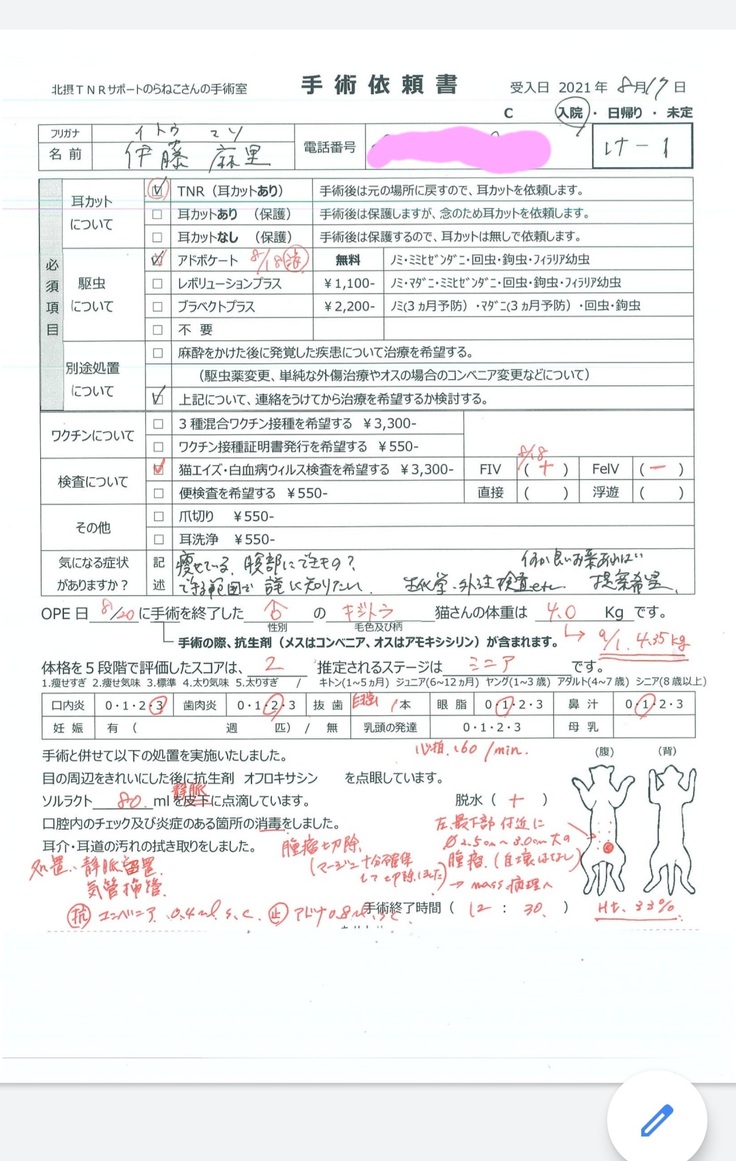 北摂TNRサポートのらねこさんの手術室
手術依頼書
受入日 2021年 8月17日
C 入院・日帰り・未定
フリガナ イトウ マリ
名前 伊藤 麻里 電話番号 け-1
必須項目
耳カットについて
☑ TNR(耳カットあり) 手術後は元の場所に戻すので、耳カットを依頼します。
□ 耳カットあり(保護) 手術後は保護しますが、念のため耳カットを依頼します。
□ 耳カットなし(保護) 手術後は保護するので、耳カットは無しで依頼します。
駆虫について
☑ アドボケート 8/18 済 無料 ノミ・ミミヒゼンダニ・回虫・鉤虫・フィラリア幼虫
□ レボリューションプラス ¥1,100- ノミ・マダニ・ミミヒゼンダニ・回虫・鉤虫・フィラリア幼虫
□ ブラベクトプラス ¥2,200- ノミ(3ヵ月予防)・マダニ(3ヵ月予防)・回虫・鉤虫
□ 不要
別途処置について
□ 麻酔をかけた後に発覚した疾患について治療を希望する。
(駆虫薬変更、単純な外傷治療やオスの場合のコンベニア変更などについて)
☑ 上記について、連絡をうけてから治療を希望するか検討する。
ワクチンについて
□ 3種混合ワクチン接種を希望する ¥3,300-
□ ワクチン接種証明書発行を希望する ¥550-
検査について
8/18
☑ 猫エイズ・白血病ウィルス検査を希望する ¥3,300- FIV (+) FelV (-)
□ 便検査を希望する ¥550- 直接 ( ) 浮遊 ( )
その他
□ 爪切り ¥550-
□ 耳洗浄 ¥550-
気になる症状がありますか? 記述
痩せている、腹部にできもの? 何か良いお薬あれば
できる範囲で詳しく知りたい。 提案希望
OPE日 8/20に手術を終了した ♂ の キジトラ 猫さんの体重は 4.0 Kg です。
性別 毛色及び柄
手術の際、抗生剤(メスはコンベニア、オスはアモキシシリン)が含まれます。 → 9/1. 4.35kg
体格を5段階で評価したスコアは、 2 推定されるステージは シニア です。
1.痩せすぎ 2.痩せ気味 3.標準 4.太り気味 5.太りすぎ / キトン(1~5ヵ月) ジュニア(6~12ヵ月) ヤング(1~3歳) アダルト(4~7歳) シニア(8歳以上)
口内炎 0・1・2・3 歯肉炎 0・1・2・3 抜歯 /本 眼脂 0・1・2・3 鼻汁 0・1・2・3
妊娠 有( 週 匹)/ 無 乳頭の発達 0・1・2・3 母乳
手術と併せて以下の処置を実施いたしました。 心拍.160/min. (腹) (背)
目の周辺をきれいにした後に抗生剤 オフロキサシン を点眼しています。
静脈
ソルラクト 80 mlを皮下に点滴しています。 脱水(+)
口腔内のチェック及び炎症のある箇所の消毒をしました。
耳介・耳道の汚れの拭き取りをしました。
左.最下部付近に
φ2.5cm~3.0cm大の
腫瘤.(自壊はなし)
→ mass病理へ
腫瘤切除
(マージン十分確保して切除しました)
処置.静脈留置
気管挿管
抗 コンベニア 0.4ml s.c. 止 アドナ0.8ml s.c.
手術終了時間(12:30) Ht.33%